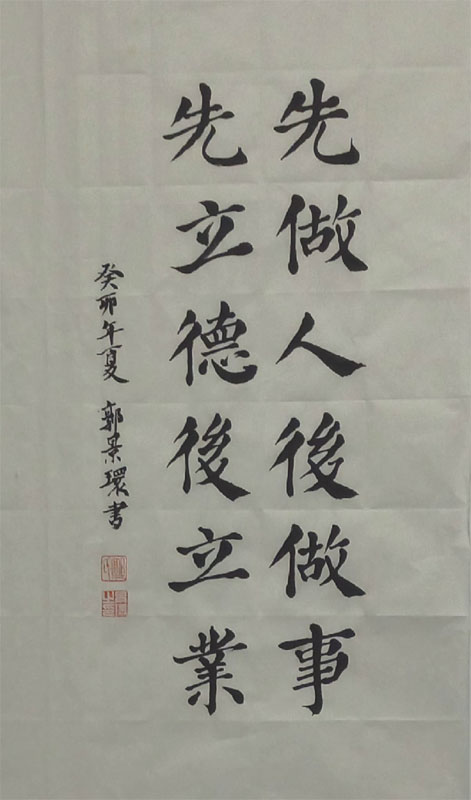 先做人後做事
先立德後立業
癸卯年夏 郭景環書